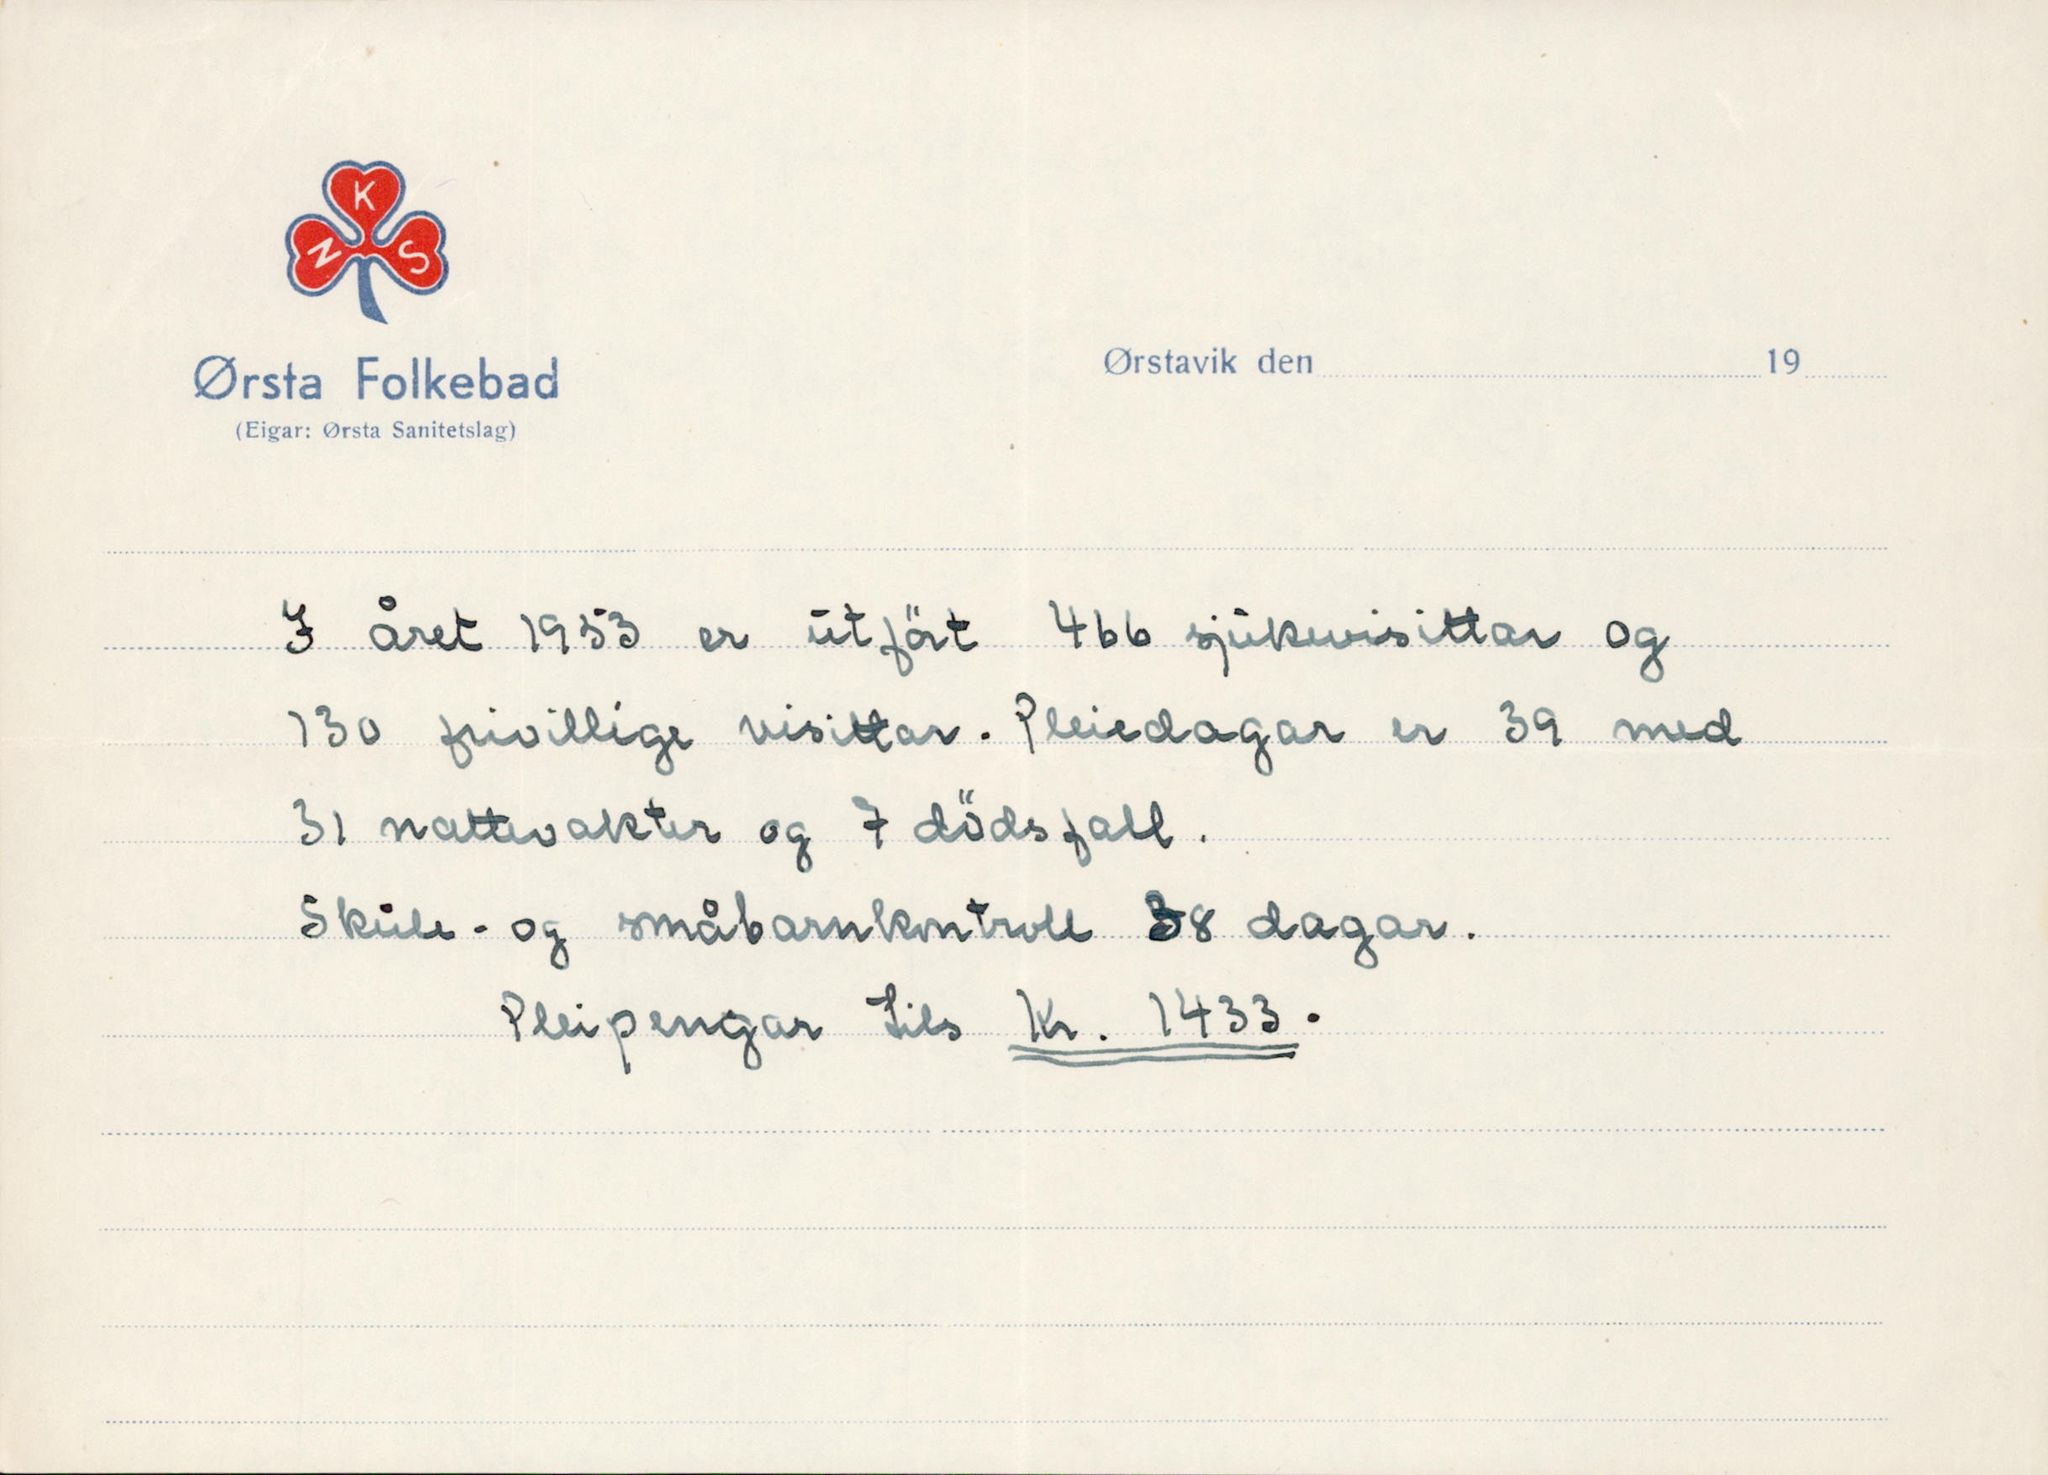 K
N S
Ørsta Folkebad
(Eigar: Ørsta Sanitetslag)
Ørstavik den 19
I året 1953 er utfört 466 sjukevisittar og
130 frivillige visittar. Pleiedagar er 39 med
31 nattevakter og 7 dödsfall.
Skule- og småbarnkontroll 38 dagar.
Pleipengar tils Kr. 1433.